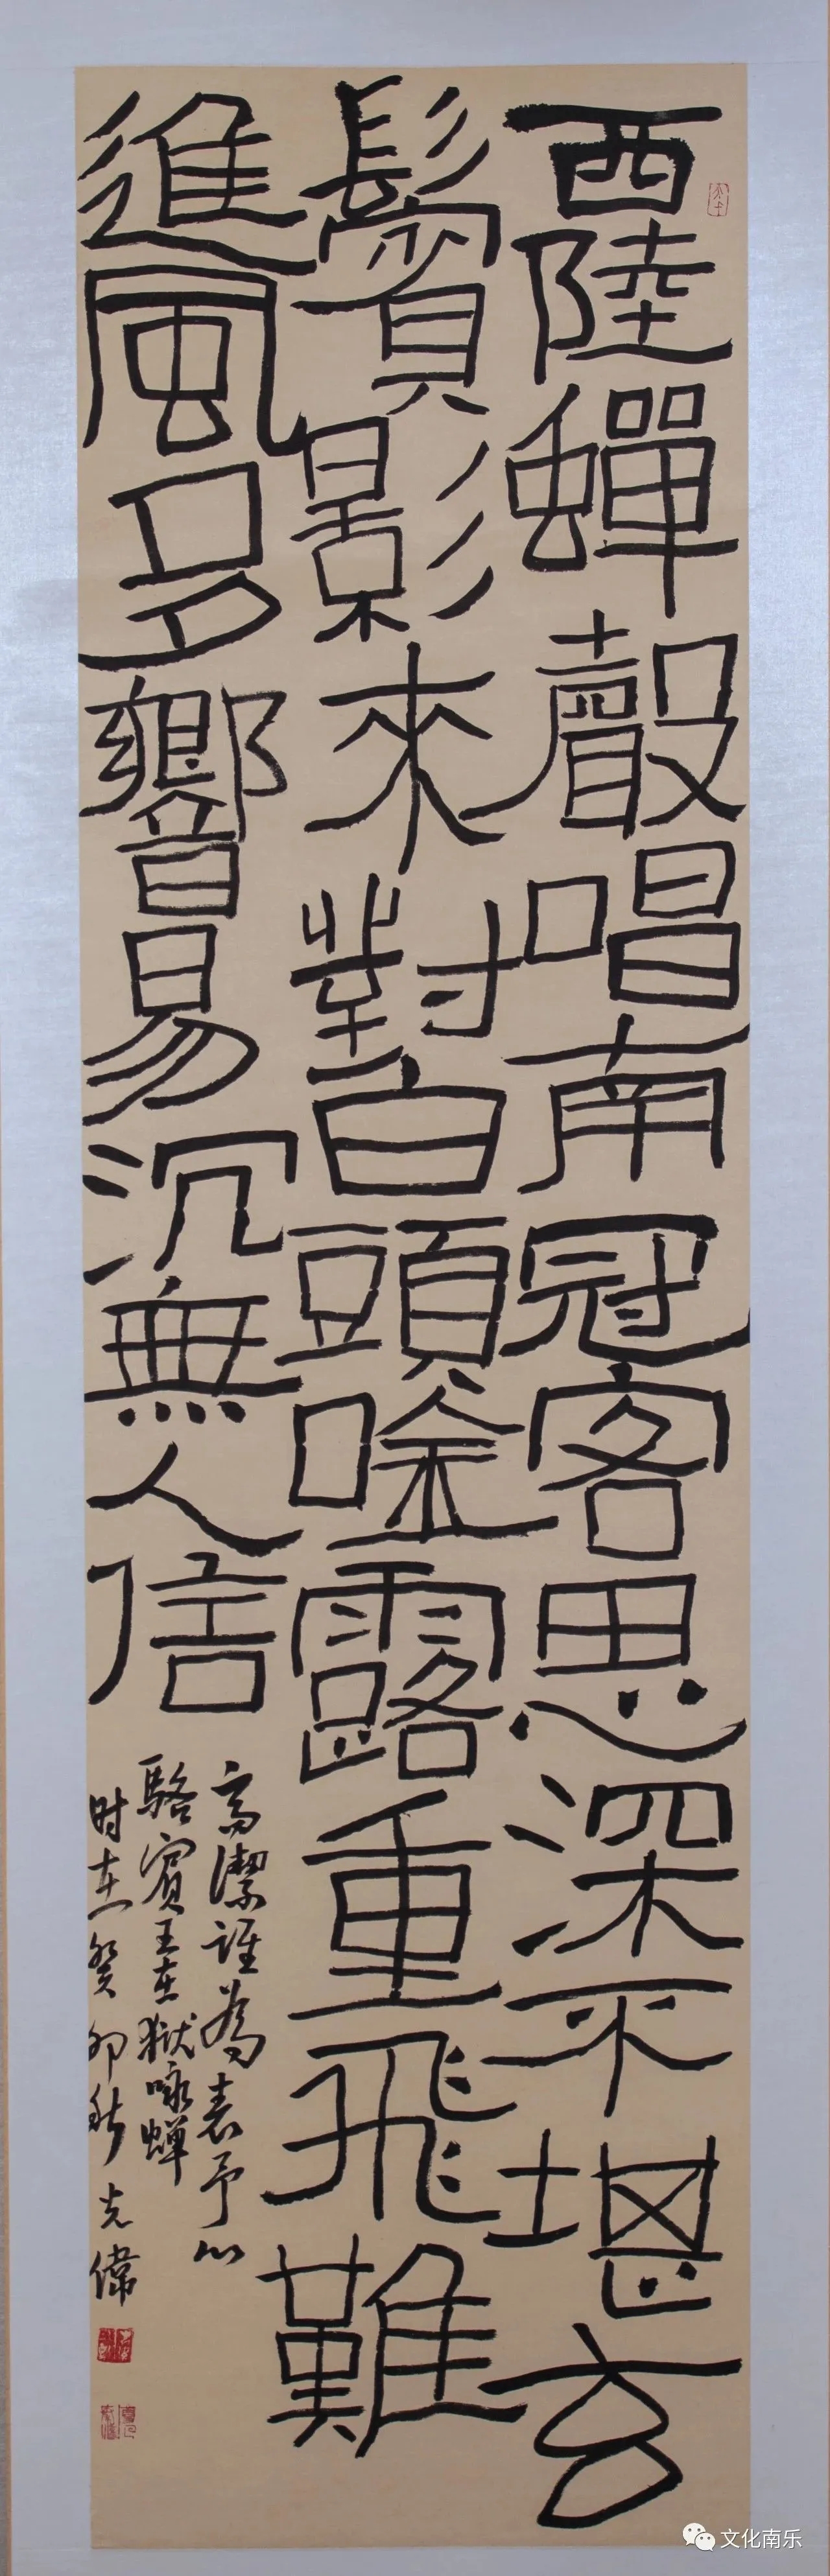 西陸蟬聲唱南冠客思深不堪玄
鬢影來對白頭唫露重飛難
進風多響易沉無人信
高潔誰為表予心
駱賓王在獄咏蝉
时在癸卯秋克偉
文化南乐